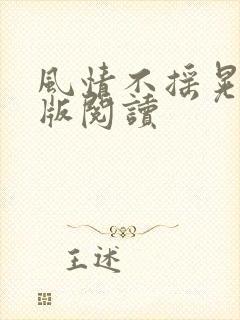 風情不摇晃
版閱讀
王述